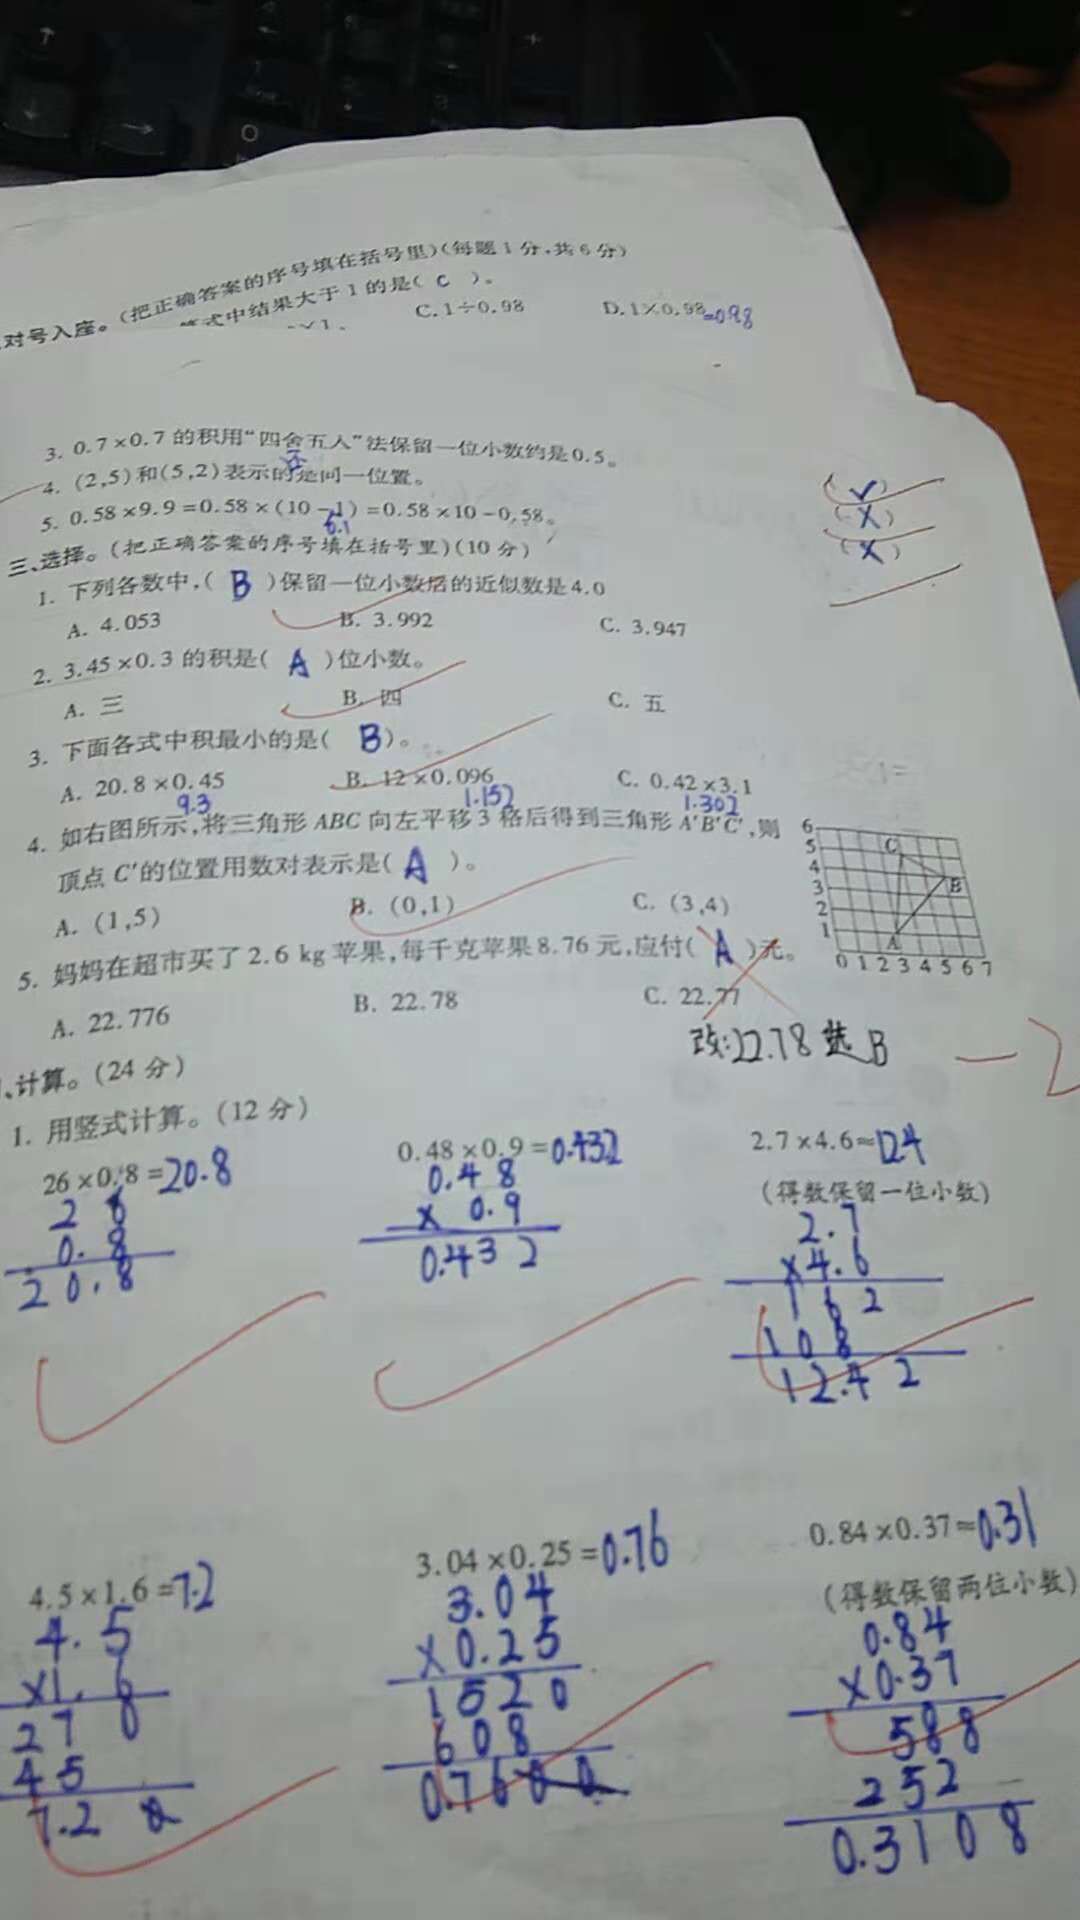 对号入座。(把正确答案的序号填在括号里)(每题1分,共6分)
式中结果大于1的是( C )。
C. 1÷0.98 D. 1×0.98=0.98
3. 0.7×0.7的积用“四舍五入”法保留一位小数约是0.5。 (✓)
4. (2,5)和(5,2)表示的是同一位置。 (X)
5. 0.58×9.9=0.58×(10-1)=0.58×10-0.58。 (X)
0.1
三、选择。(把正确答案的序号填在括号里)(10分)
1. 下列各数中,( B )保留一位小数后的近似数是4.0
A. 4.053 B. 3.992 C. 3.947
2. 3.45×0.3的积是( A )位小数。
A. 三 B. 四 C. 五
3. 下面各式中积最小的是( B )。
A. 20.8×0.45 B. 12×0.096 C. 0.42×3.1
9.3 1.152 1.302
4. 如右图所示,将三角形ABC向左平移3格后得到三角形A'B'C',则
顶点C'的位置用数对表示是( A )。
A. (1,5) B. (0,1) C. (3,4)
6
5 C
4
3 B
2
1 A
0 1 2 3 4 5 6 7
5. 妈妈在超市买了2.6 kg苹果,每千克苹果8.76元,应付( A )元。
A. 22.776 B. 22.78 C. 22.77
改:22.78 选B
-2
、计算。(24分)
1. 用竖式计算。(12分)
26×0.8=20.8 0.48×0.9=0.432 2.7×4.6≈12.4
(得数保留一位小数)
2 6 0.4 8 2.7
0.8 × 0.9 ×4.6
20.8 0.432 1 6 2
1 0 8
12.4 2
4.5×1.6=7.2 3.04×0.25=0.76 0.84×0.37≈0.31
(得数保留两位小数)
4.5 3.04 0.84
×1.6 ×0.25 ×0.37
2 7 0 1 5 2 0 5 8 8
4 5 6 0 8 2 5 2
7.2 0 0.7600 0.3108